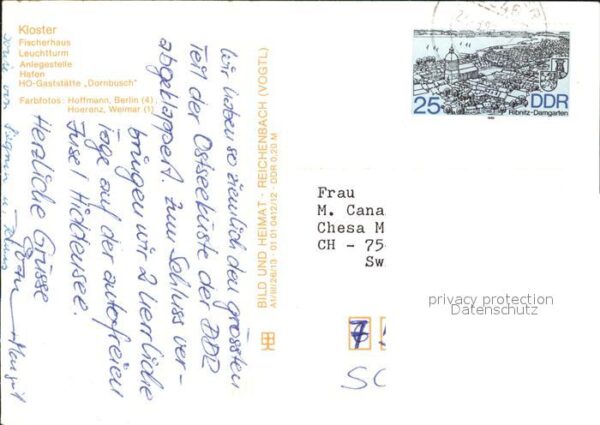 Kloster
Fischerhaus
Leuchtturm
Anlegestelle
Hafen
HO-Gaststätte „Dornbusch"
Farbfotos: Hoffmann, Berlin (4);
Hoerenz, Weimar (1)
Wir haben so ziemlich den grössten
Teil der Ostseeküste der DDR
abgeklappert. Zum Schluss ver-
bringen wir 2 herrliche
Tage auf der autofreien
Insel Hiddensee.
Herzliche Grüsse
BILD UND HEIMAT · REICHENBACH (VOGTL)
A1/III/26/13 · 01 01 0412/12 · DDR 0,20 M
25 DDR
Ribnitz-Damgarten
Frau
M. Cana
Chesa M
CH - 75
Sw
privacy protection
Datenschutz
7 5